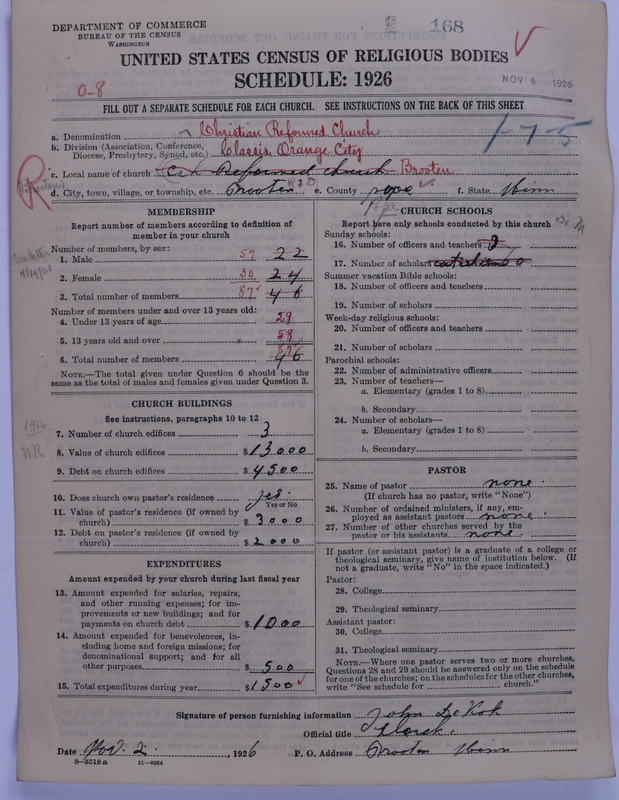 DEPARTMENT OF COMMERCE
BUREAU OF THE CENSUS
WASHINGTON
168
UNITED STATES CENSUS OF RELIGIOUS BODIES
SCHEDULE: 1926
NOV 6 1926
0-8
FILL OUT A SEPARATE SCHEDULE FOR EACH CHURCH. SEE INSTRUCTIONS ON THE BACK OF THIS SHEET
1-7-5
a. Denomination Christian Reformed Church
b. Division (Association, Conference, Diocese, Presbytery, Synod, etc.) Classis Orange City
R
c. Local name of church Reformed church Brooten
d. City, town, village, or township, etc. Brooten e. County pope f. State Minn
MEMBERSHIP
Report number of members according to definition of member in your church
Number of members, by sex:
1. Male 57 22
2. Female 30 24
3. Total number of members 87 46
Number of members under and over 13 years old:
4. Under 13 years of age 29
5. 13 years old and over 58
6. Total number of members 87 46
NOTE.—The total given under Question 6 should be the same as the total of males and females given under Question 3.
CHURCH BUILDINGS
See instructions, paragraphs 10 to 12
1916
NR
7. Number of church edifices 3
8. Value of church edifices $13000
9. Debt on church edifices $4500
10. Does church own pastor's residence yes.
Yes or No
11. Value of pastor's residence (if owned by church) $3000
12. Debt on pastor's residence (if owned by church) $2000
EXPENDITURES
Amount expended by your church during last fiscal year
13. Amount expended for salaries, repairs, and other running expenses; for improvements or new buildings; and for payments on church debt $1000
14. Amount expended for benevolences, including home and foreign missions; for denominational support; and for all other purposes $500
15. Total expenditures during year $1500
CHURCH SCHOOLS
Report here only schools conducted by this church
Sunday schools:
16. Number of officers and teachers
17. Number of scholars
Summer vacation Bible schools:
18. Number of officers and teachers
19. Number of scholars
Week-day religious schools:
20. Number of officers and teachers
21. Number of scholars
Parochial schools:
22. Number of administrative officers
23. Number of teachers—
a. Elementary (grades 1 to 8)
b. Secondary
24. Number of scholars—
a. Elementary (grades 1 to 8)
b. Secondary
PASTOR
25. Name of pastor none.
(If church has no pastor, write "None")
26. Number of ordained ministers, if any, employed as assistant pastors none.
27. Number of other churches served by the pastor or his assistants none.
If pastor (or assistant pastor) is a graduate of a college or theological seminary, give name of institution below. (If not a graduate, write "No" in the space indicated.)
Pastor:
28. College
29. Theological seminary
Assistant pastor:
30. College
31. Theological seminary
NOTE.—Where one pastor serves two or more churches, Questions 28 and 29 should be answered only on the schedule for one of the churches; on the schedules for the other churches, write "See schedule for church."
Signature of person furnishing information John De Kok
Official title Clerk.
Date Nov. 2. , 1926 P. O. Address Brooten Minn
8-5518 a 11-9054